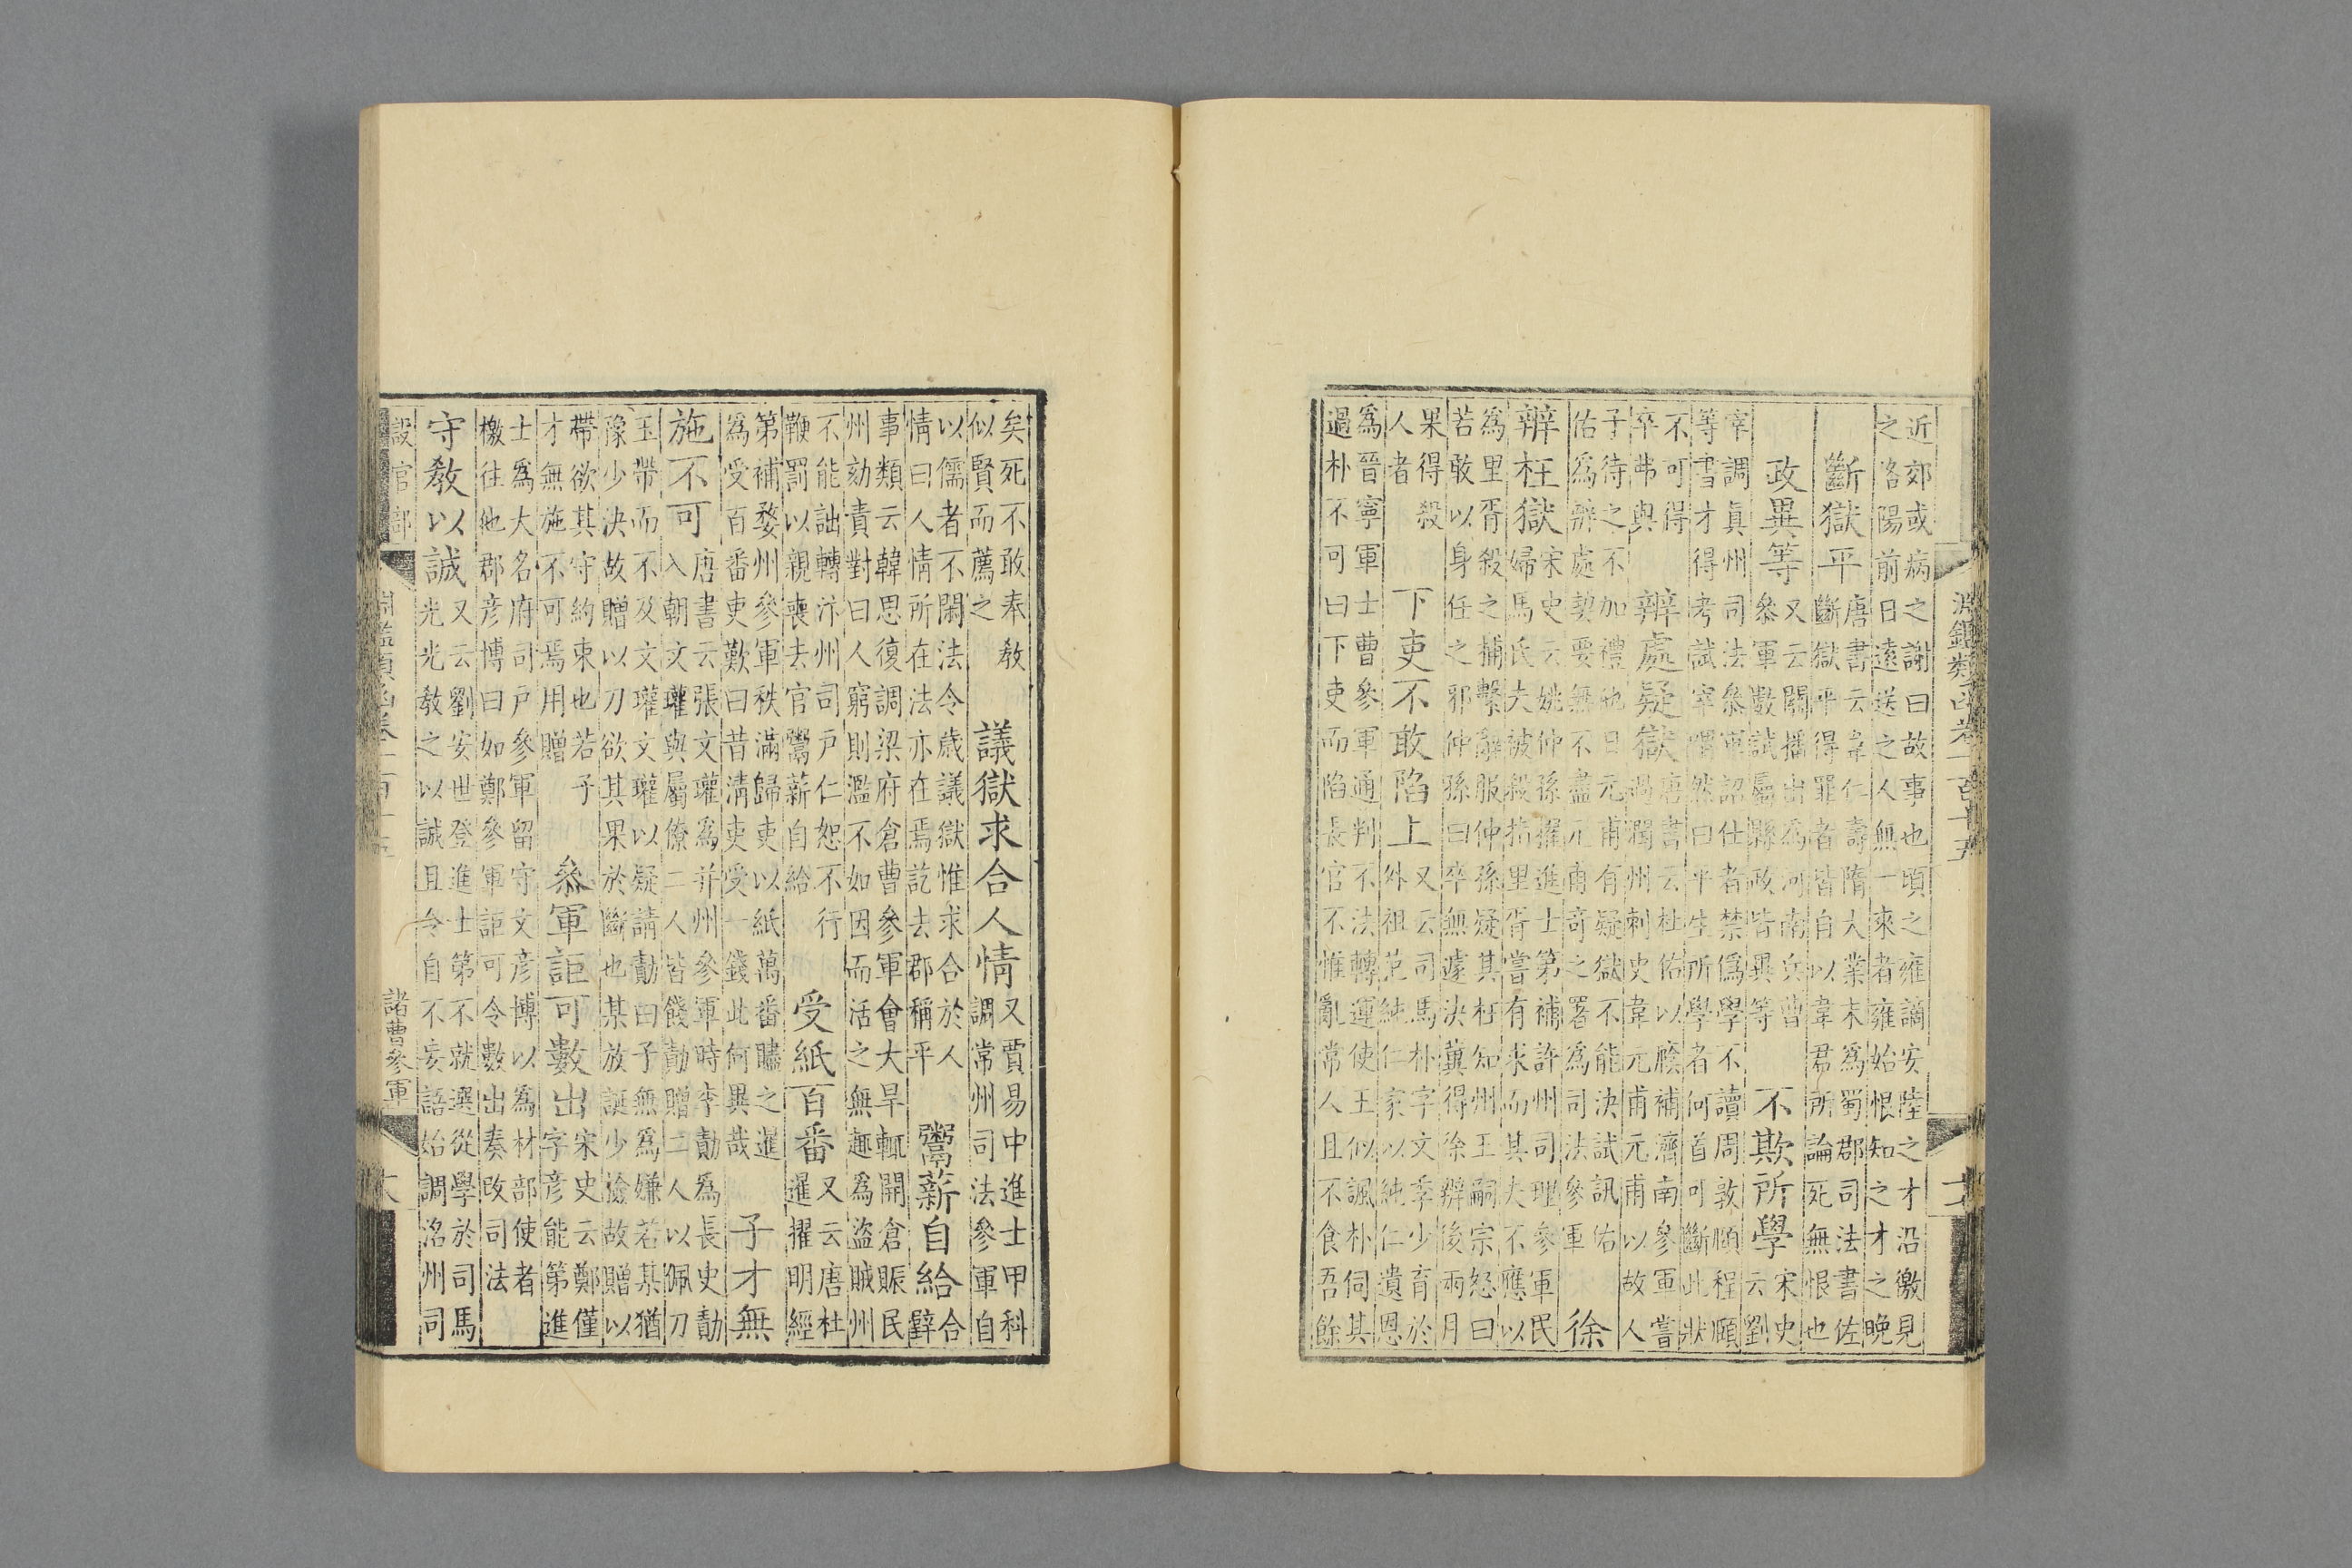 近郊或病之謝曰故事也頃之雍謫安陸之才沿檄見
之洛陽前日遠送之人無一來者雍始恨知之才之晚
斷獄平
唐書云韋仁壽隋大業末為蜀郡司法書佐
斷獄平得罪者皆自以韋君所論死無恨也
政異等
又云關播出為河南兵曹
參軍數試屬縣政皆異等
不欺所學
宋史
云劉
宰調真州司法參軍詔仕者禁偽學不讀周敦頤程頤
等書才得考試宰喟然曰平生所學者何首可斷此狀
不可得
卒弗與
辨處疑獄
唐書云杜佑以廕補濟南參軍嘗
過潤州刺史韋元甫元甫以故人
子待之不加禮他日元甫有疑獄不能決試訊佑
佑為辨處契要無不盡元甫奇之署為司法參軍
徐
辨枉獄
宋史云姚仲孫擢進士第補許州司理參軍民
婦馬氏夫被殺指里胥嘗有求而其夫不應以
為里胥殺之捕繫辭服仲孫疑其枉知州王嗣宗怒曰
若敢以身任之邪仲孫曰卒無遽決冀得徐辨後兩月
果得殺
人者
下吏不敢陷上
又云司馬朴字文季少育於
外祖范純仁家以純仁遺恩
為晉寧軍士曹參軍通判不法轉運使王似諷朴伺其
過朴不可曰下吏而陷長官不惟亂常人且不食吾餘
淵鑑類函卷一百十五
矣死不敢奉教
似賢而薦之
議獄求合人情
又賈易中進士甲科
調常州司法參軍自
以儒者不閑法令歲議獄惟求合於人
情曰人情所在法亦在焉訖去郡稱平
鬻薪自給
合
辟
事類云韓思復調梁府倉曹參軍會大旱輒開倉賑民
州劾責對曰人窮則濫不如因而活之無趣為盜賊州
不能詘轉汴州司戶仁恕不行
鞭罰以親喪去官鬻薪自給
受紙百番
又云唐杜
暹擢明經
第補婺州參軍秩滿歸吏以紙萬番贐之暹
為受百番吏歎曰昔清吏受一錢此何異哉
子才無
施不可
唐書云張文瓘為并州參軍時李勣為長史勣
入朝文瓘與屬僚二人皆餞勣贈二人以佩刀
玉帶而不及文瓘文瓘以疑請勣曰子無為嫌若某猶
豫少決故贈以刀欲其果於斷也某放誕少檢故贈以
帶欲其守約束也若子
才無施不可焉用贈
參軍詎可數出
宋史云鄭僅
字彥能第進
士為大名府司戶參軍留守文彥博以為材部使者
檄往他郡彥博曰如鄭參軍詎可令數出奏改司法
守教以誠
又云劉安世登進士第不就選從學於司馬
光光教之以誠且令自不妄語始調洺州司
設官部
淵鑑類函卷一百十五
諸曹參軍